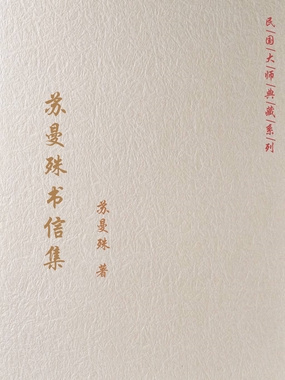 民|国|大|师|典|藏|系|列
苏曼殊书信集
苏曼殊 著